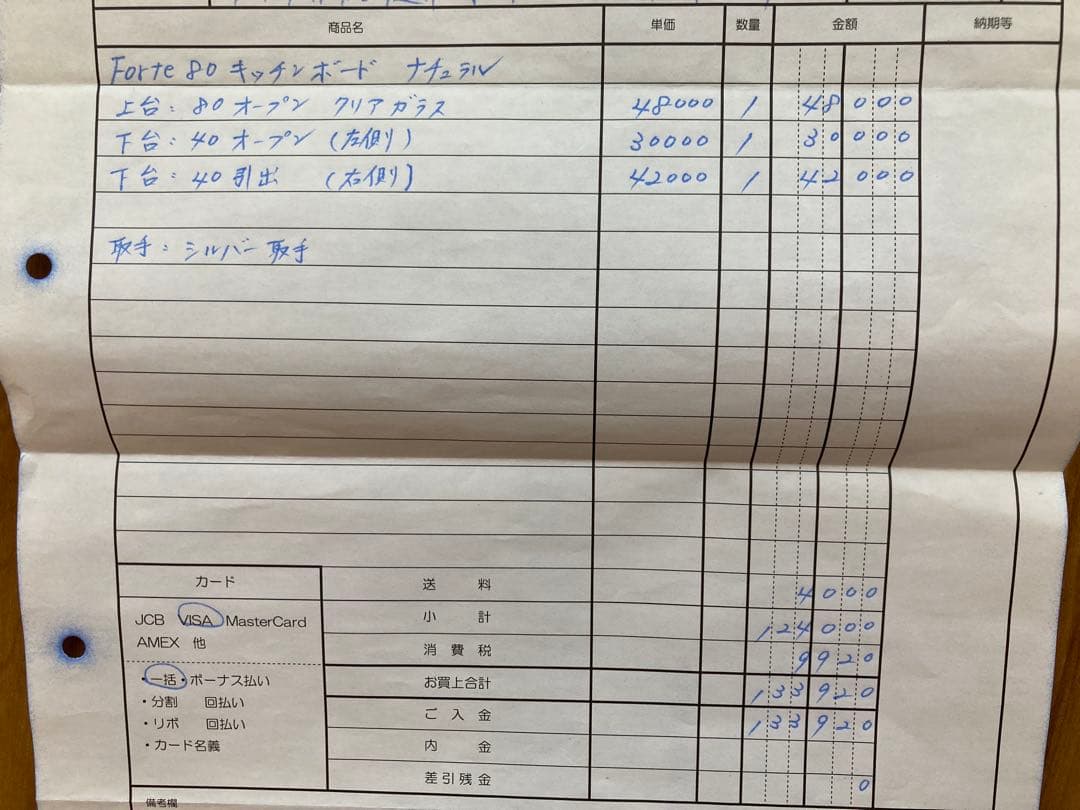 商品名 単価 数量 金額 納期等
Forte 80 キッチンボード ナチュラル
上台：80 オープン クリアガラス 48000 1 48000
下台：40 オープン (左側) 30000 1 30000
下台：40 引出 (右側) 42000 1 42000
取手：シルバー取手
カード
JCB VISA MasterCard
AMEX 他
・一括・ボーナス払い
・分割 回払い
・リボ 回払い
・カード名義
送料 4000
小計 124000
消費税 9920
お買上合計 133920
ご入金 133920
内金
差引残金 0
備考欄